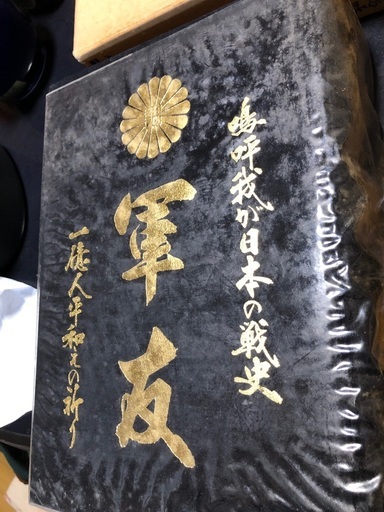 嗚呼我が日本の戦史
軍友
一億人平和えの祈り